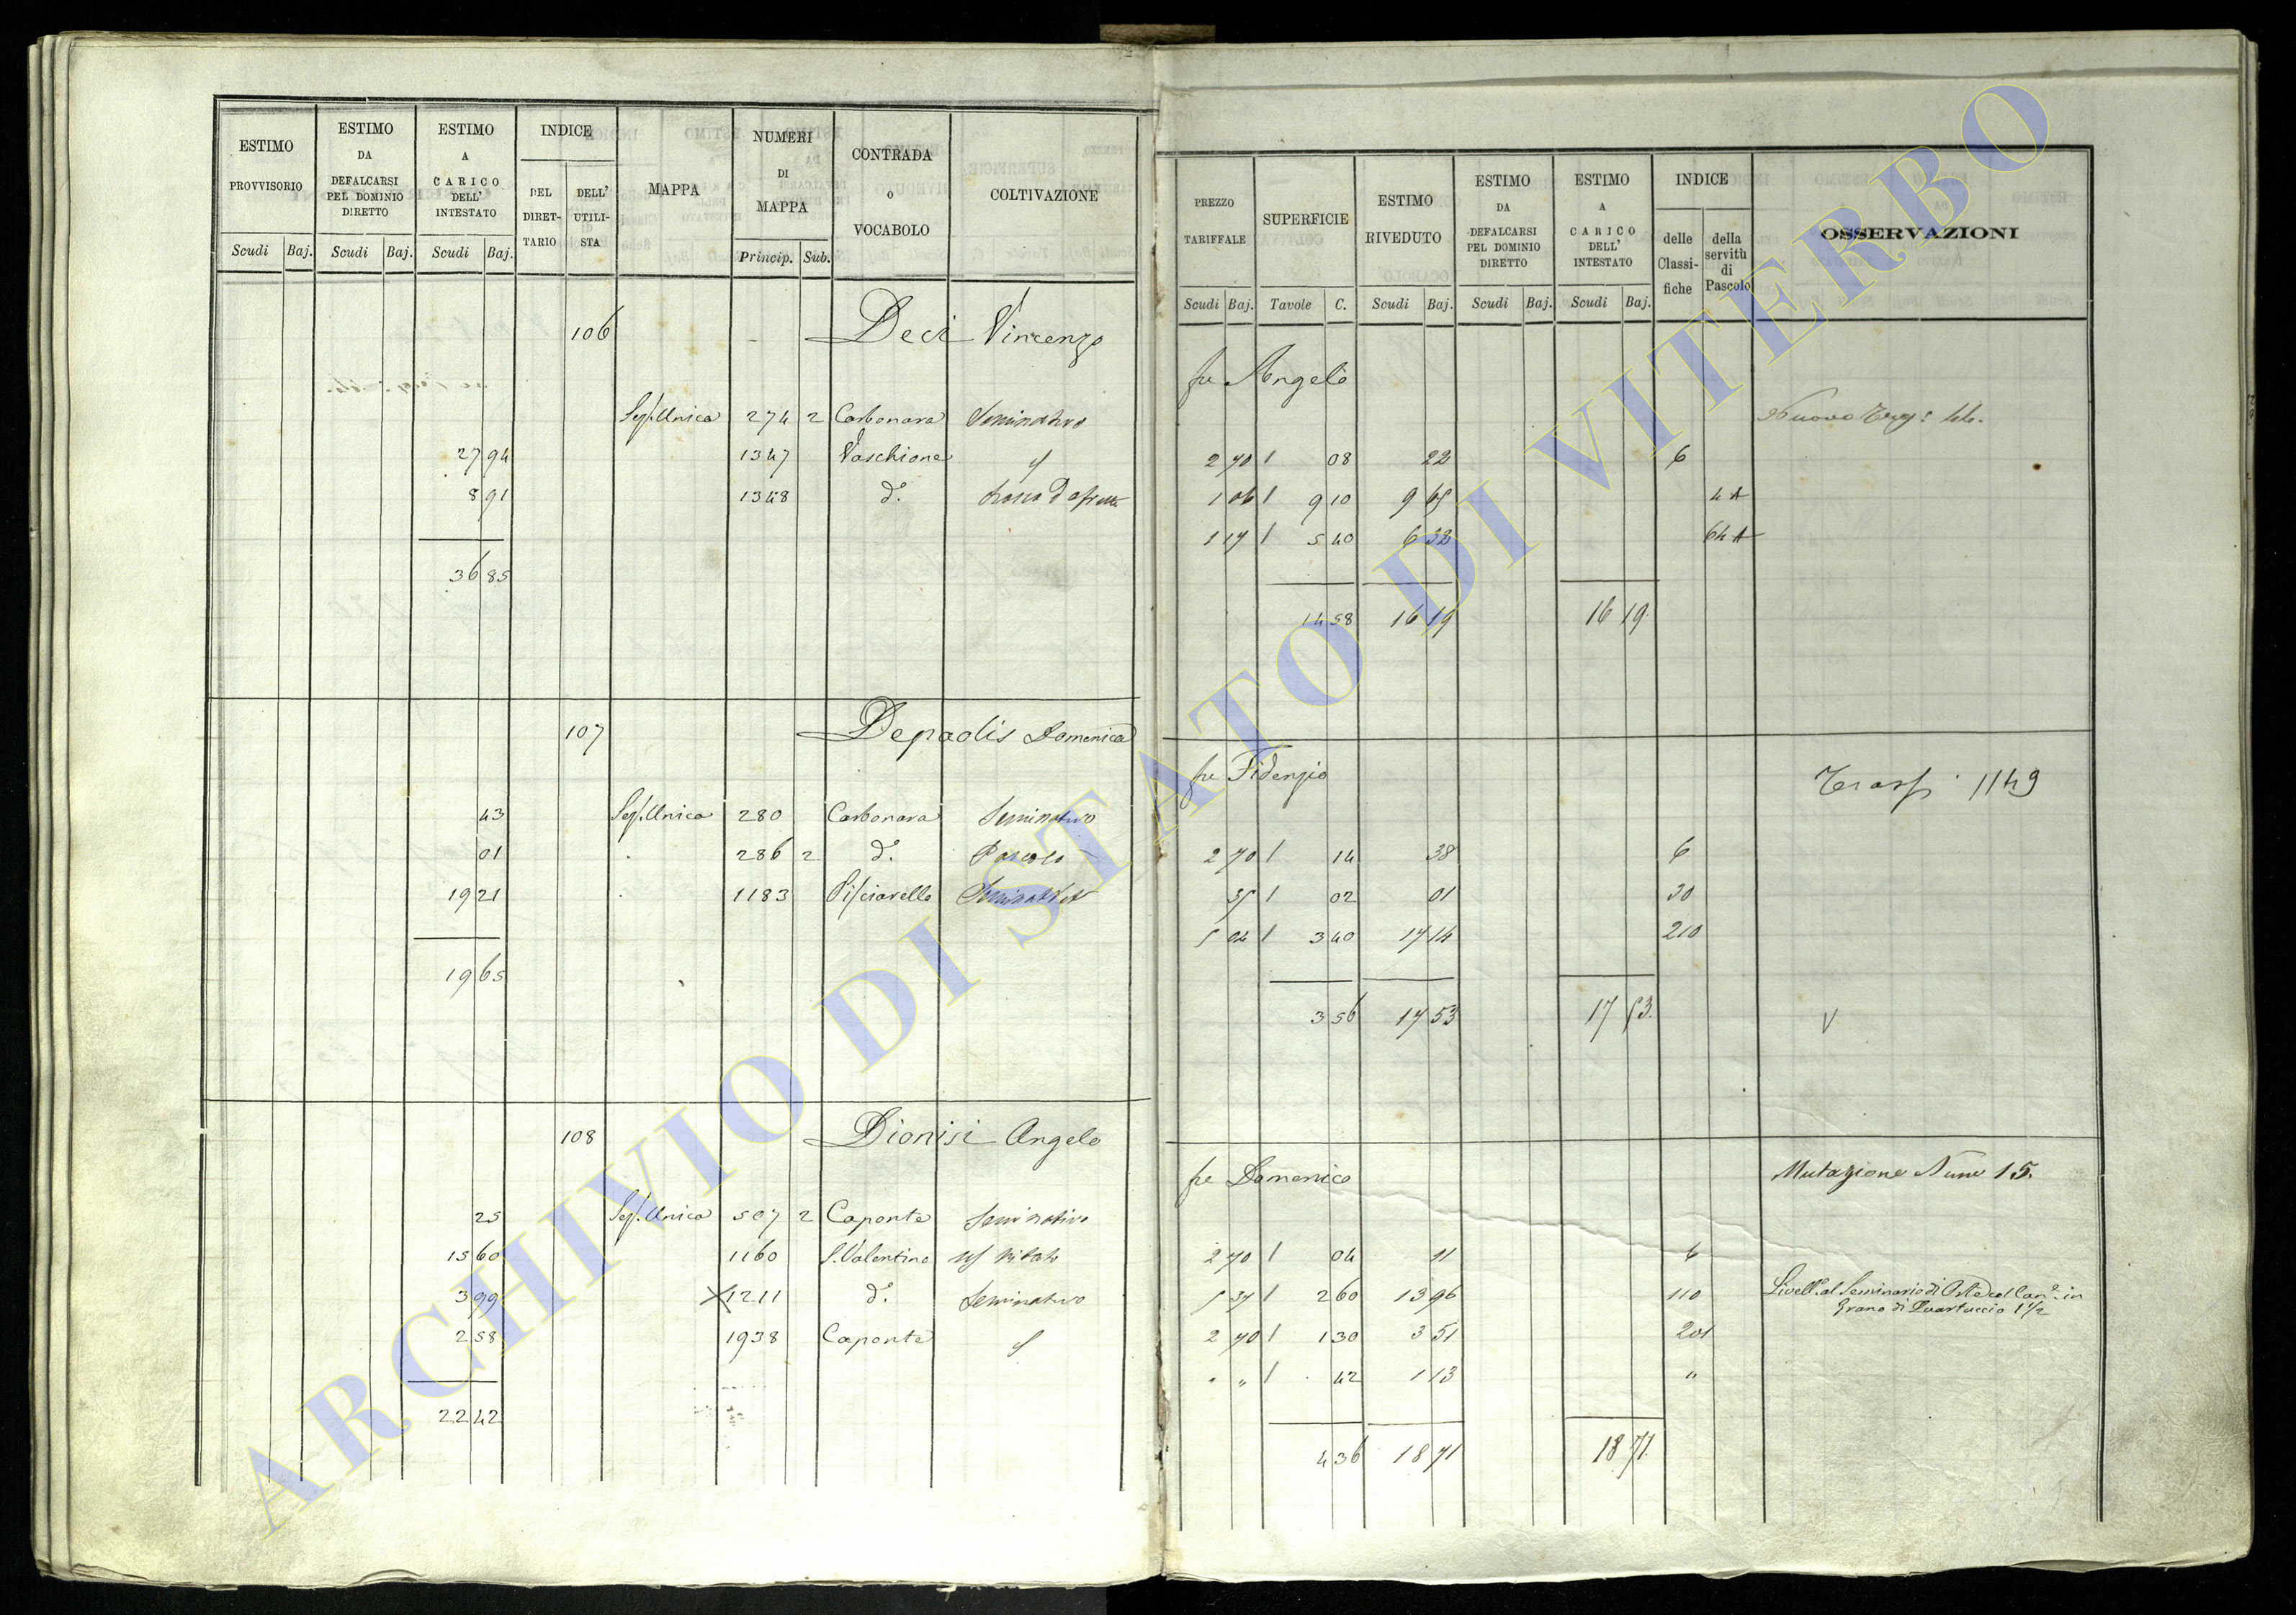 ESTIMO PROVVISORIO Scudi Baj. ESTIMO DA DEFALCARSI PEL DOMINIO DIRETTO Scudi Baj. ESTIMO A CARICO DELL' INTESTATO Scudi Baj. INDICE DEL DIRETTARIO DELL' UTILISTA MAPPA NUMERI DI MAPPA Princip. Sub. CONTRADA o VOCABOLO COLTIVAZIONE
106 Deci Vincenzo
Sez. Unica 274 2 Carbonara Seminativo
27 94 1347 Vaschione
8 91 1348 d.°
36 85
107 Depaolis Domenica
43 Sez. Unica 280 Carbonara Seminativo
01 286 2 d.° Pascolo
19 21 1183 Pisciarello Seminativo
19 65
108 Dionisi Angelo
25 Sez. Unica 507 2 Caponte Seminativo
15 60 1160 S. Valentino
3 99 X 1211 d.° Seminativo
2 58 1938 Caponte
22 42
PREZZO TARIFFALE Scudi Baj. SUPERFICIE Tavole C. ESTIMO RIVEDUTO Scudi Baj. ESTIMO DA DEFALCARSI PEL DOMINIO DIRETTO Scudi Baj. ESTIMO A CARICO DELL' INTESTATO Scudi Baj. INDICE delle Classifiche della servitù di Pascolo OSSERVAZIONI
fu Angelo
Nuovo
2 70 / 08 22 6
1 06 / 9 10 9 65 4 A
1 17 / 5 40 6 32 64 A
14 58 16 19 16 19.
fu Fidenzio
Trasp. 1149
2 70 / 14 38 6
35 / 02 01 30
5 04 / 3 40 17 14 210
3 56 17 53 17 53. V
fu Domenico Mutazione Num 15.
2 70 / 04 11 6
5 37 / 2 60 13 96 110 Livell. al Seminario di Orte col Can.e in
Grano di Quartuccio 1 1/2
2 70 / 1 30 3 51 201
" " / 42 1 13 "
4 36 18 71 18 71.
ARCHIVIO DI STATO DI VITERBO